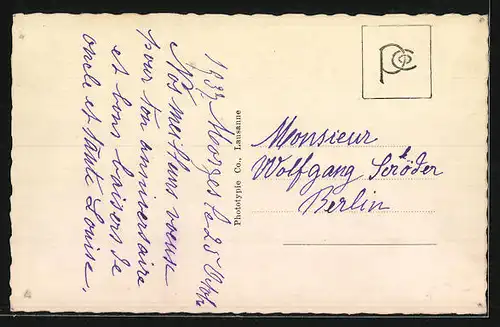 1937 Morges le 25 Octb.
Nos meilleurs voeux
pour ton anniversaire
et bons baisers de
oncle et tante Louise.
Phototypie Co., Lausanne
PCo
Monsieur
Wolfgang Schröder
Berlin